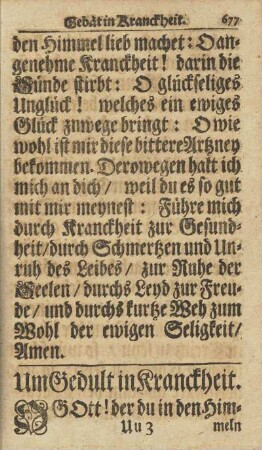 Gebät in Kranckheit. 677
den Himmel lieb machet: O an-
genehme Kranckheit! darin die
Sünde stirbt: O glückseliges
Unglück! welches ein ewiges
Glück zuwege bringt: O wie
wohl ist mir diese bittere Artzney
bekommen. Derowegen halt ich
mich an dich/ weil du es so gut
mit mir meynest: Führe mich
durch Kranckheit zur Gesund-
heit/durch Schmertzen und Un-
ruh des Leibes/ zur Ruhe der
Seelen/durchs Leyd zur Freu-
de/ und durchs kurtze Weh zum
Wohl der ewigen Seligkeit/
Amen.
Um Gedult in Kranckheit.
O GOtt! der du in den Him-
Uu 3 meln